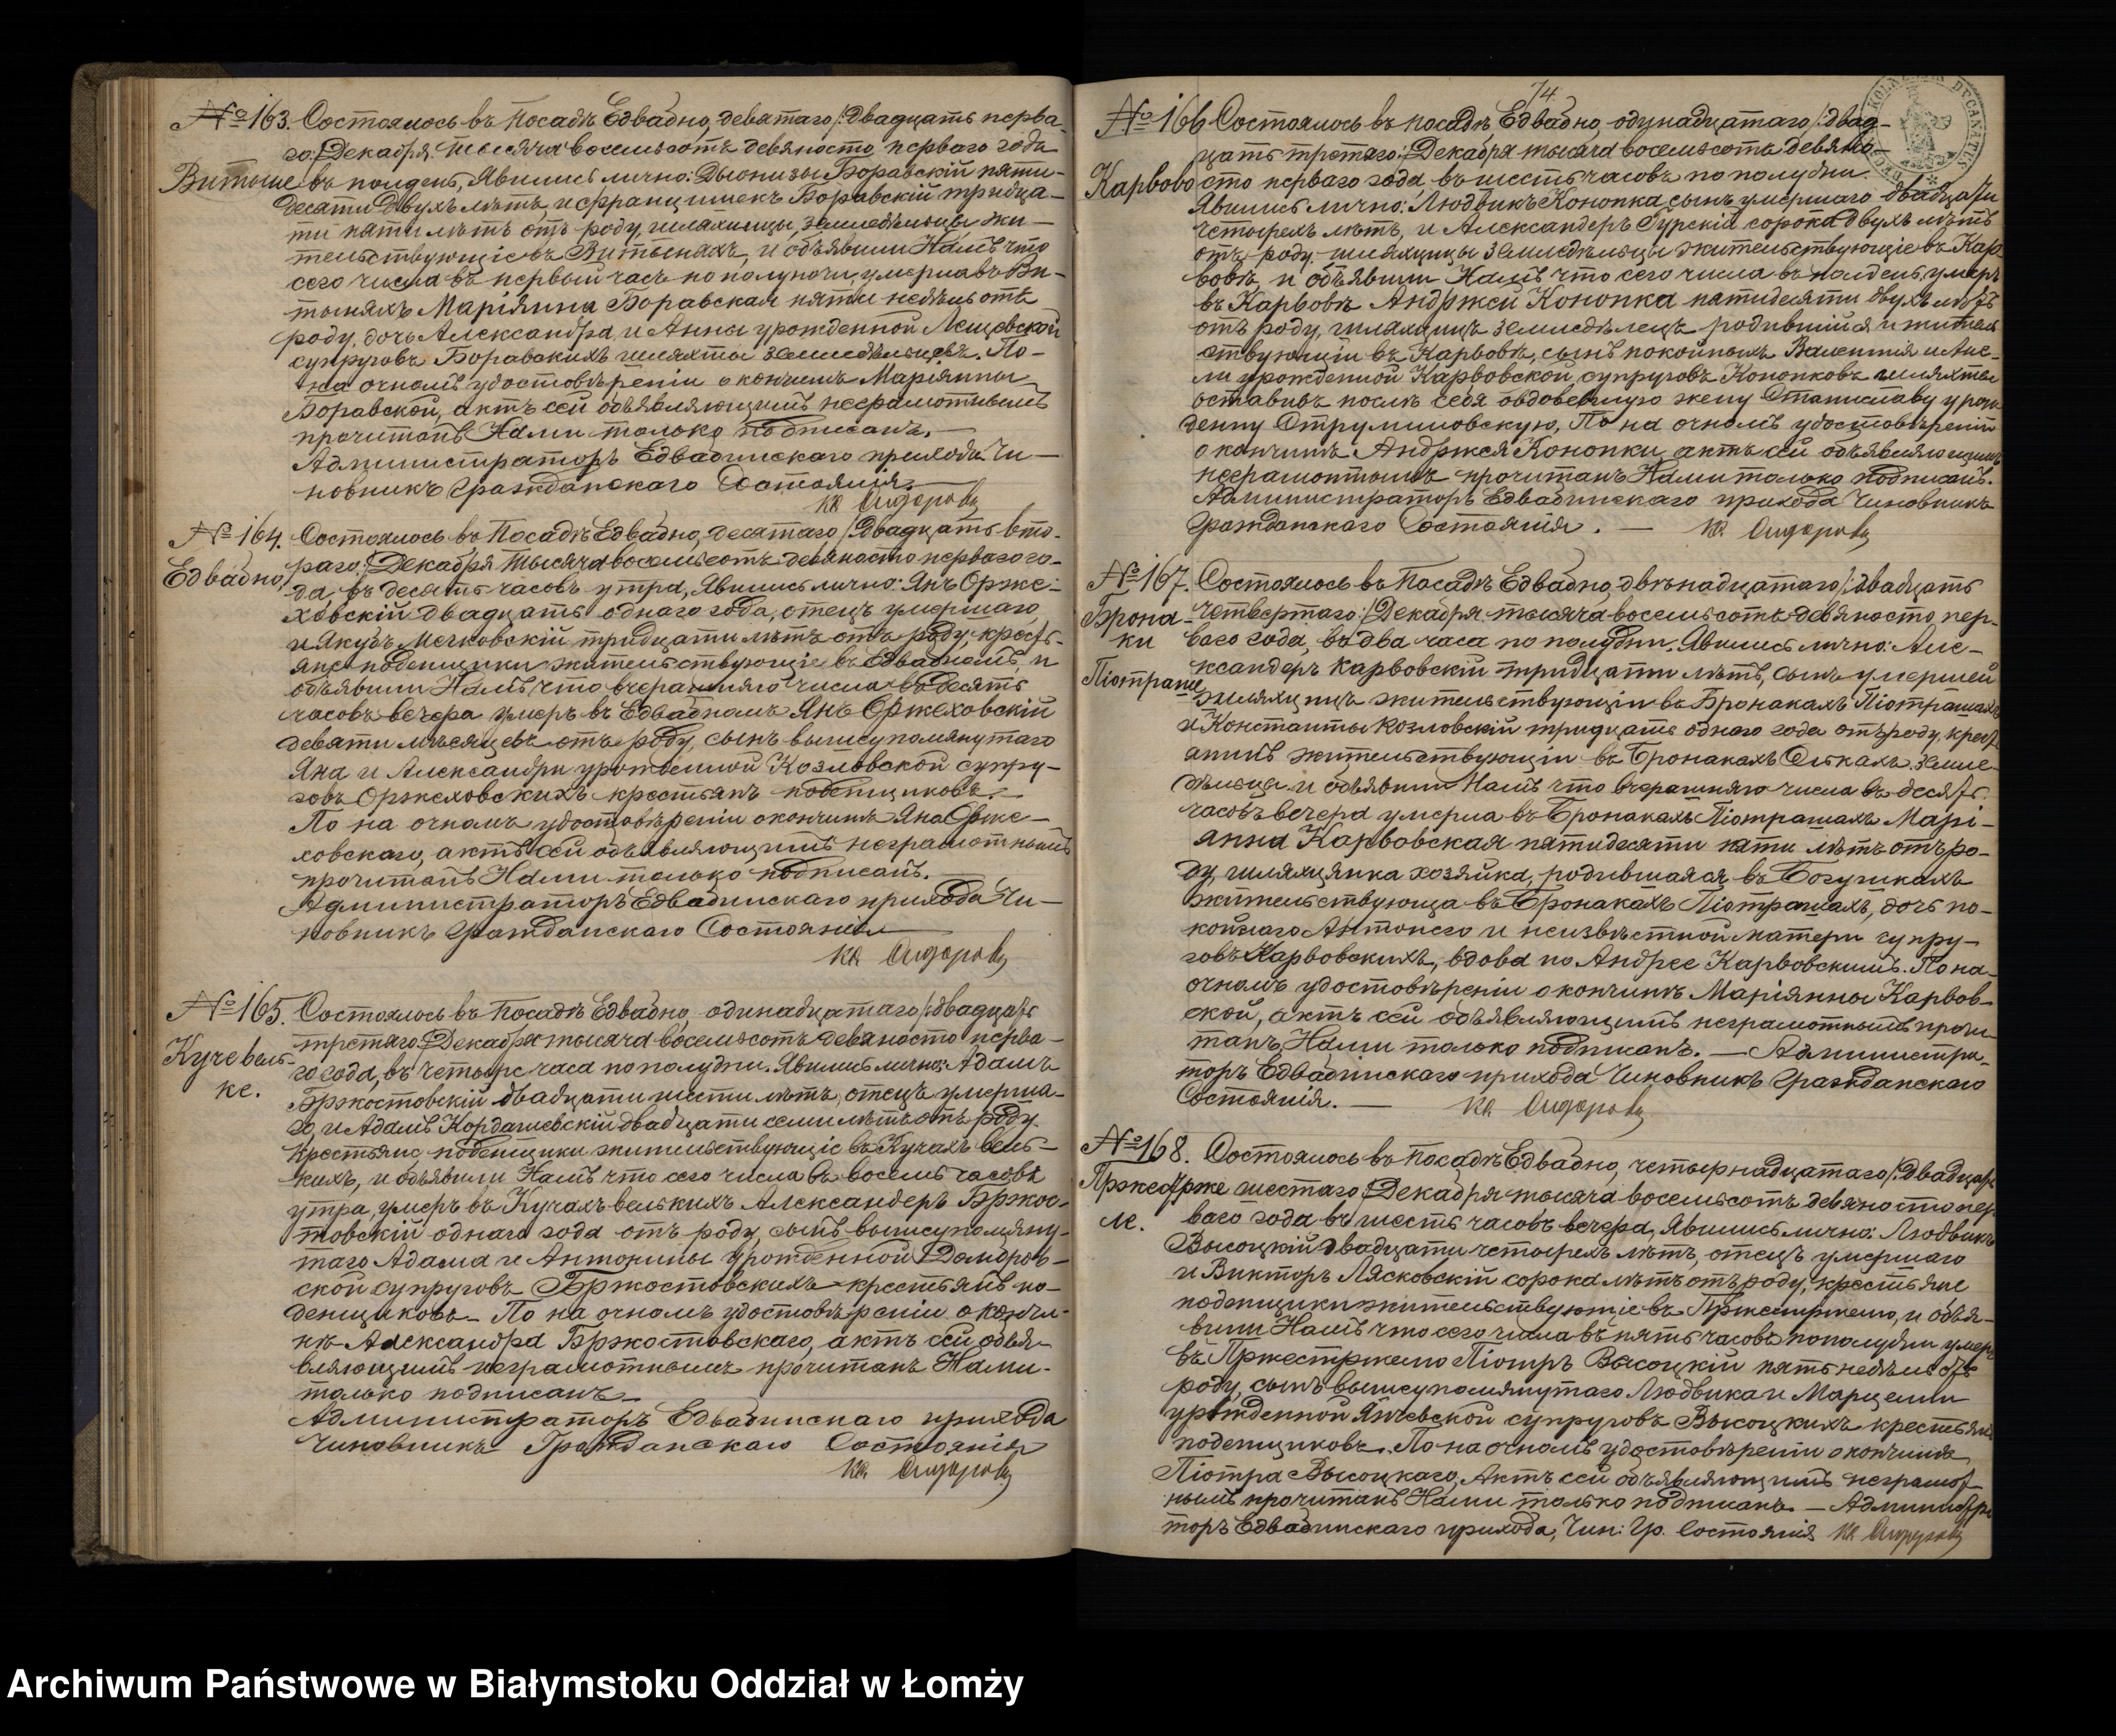 № 163. Состоялось въ Посадѣ Едвабно, девятаго /:двадцать перва-
го:/ Декабря тысяча восемьсотъ девяносто перваго года
Витыне въ полдень, Явились лично: Дыонизы Боравскій пяти-
десяти двухъ лѣтъ, и Францишекъ Боравскій тридца-
ти пяти лѣтъ отъ роду, шляхтцы, земледѣльцы жи-
тельствующіе въ Витыняхъ, и объявили Намъ что
сего числа въ первый часъ по полуночи, умерла въ Ви-
тыняхъ Маріянна Боравская пяти недѣль отъ
роду, дочь Александра, и Анны урожденной Лещевской
супруговъ Боравскихъ шляхты земледѣльцевъ. По-
на очномъ удостовѣреніи о кончинѣ Маріянны
Боравской, актъ сей объявляющимъ неграмотнымъ
прочитанъ Нами только подписанъ.
Администраторъ Едвабинскаго прихода Чи-
новникъ Гражданскаго Состоянія.
№ 164. Состоялось въ Посадѣ Едвабно, десятаго /:двадцать вто-
раго:/ Декабря тысяча восемьсотъ девяносто перваго го-
Едвабно,
да, въ десять часовъ утра, Явились лично: Янъ Орже-
ховскій двадцать однаго года, отецъ умершаго,
и Якубъ тридцати лѣтъ отъ роду, кресть-
яне поденщики жительствующіе въ Едвабномъ, и
объявили Намъ, что вчерашняго числа въ десять
часовъ вечера умеръ въ Едвабномъ Янъ Оржеховскій
девяти мѣсяцевъ отъ роду, сынъ вышеупомянутаго
Яна и Александры урожденной Козловской супру-
говъ Оржеховскихъ крестьянъ поденщиковъ.
По на очномъ удостовѣреніи о кончинѣ Яна Орже-
ховскаго, актъ сей объявляющимъ неграмотнымъ
прочитанъ Нами только подписанъ.
Администраторъ Едвабинскаго прихода Чи-
новникъ Гражданскаго Состоянія
№ 165. Состоялось въ Посадѣ Едвабно, одинадцатаго /:двадцать
третяго:/ Декабря тысяча восемьсотъ девяносто перва-
Кучевель-
го года, въ четыре часа по полудни. Явились лично: Адамъ
ке.
Бржостовскій двадцати шести лѣтъ, отецъ умерша-
го, и Адамъ Кордашевскій двадцати семи лѣтъ отъ роду.
Крестьяне поденщики жительствующіе въ Кучахъ вель-
кихъ, и объявили Намъ что сего числа въ восемь часовъ
утра, умеръ въ Кучахъ велькихъ Александеръ Бржос-
товскій однаго года отъ роду, сынъ вышеупомяну-
таго Адама и Антонины урожденной Домбров-
ской супруговъ Бржостовскихъ крестьянъ по-
денщиковъ. По на очномъ удостовѣреніи о кончи-
нѣ Александра Бржостовскаго, актъ сей объя-
вляющимъ неграмотнымъ прочитанъ Нами
только подписанъ
Администраторъ Едвабинскаго прихода
Чиновникъ Гражданскаго Состоянія
74
№ 166 Состоялось въ посадѣ Едвабно, одинадцатаго /:двад-
цать третяго:/ Декабря тысяча восемьсотъ девяно-
Карвово сто перваго года, въ шесть часовъ по полудни.
Явились лично: Людвикъ Конопка, сынъ умершаго двадцати
четырехъ лѣтъ, и Александеръ Гурскій сорока двухъ лѣтъ
отъ роду, шляхтцы земледѣльцы жительствующіе въ Кар-
вовѣ, и объявили Намъ что сего числа въ полдень умеръ
въ Карвовѣ Анджей Конопка пятидесяти двухъ лѣтъ
отъ роду, шляхтицъ земледѣлецъ родившійся и житель
ствующій въ Карвовѣ, сынъ покойныхъ Валентія и Ане-
ли урожденной Карвовской супруговъ Конопковъ шляхты
оставивъ послѣ себя овдовевшую жену Станиславу урож
денну Струмиловскую, По на очномъ удостовѣреніи
о кончинѣ Анджея Конопки, актъ сей объявляющимъ
неграмотнымъ прочитанъ Нами только подписанъ.
Администраторъ Едвабинскаго прихода Чиновникъ
Гражданскаго Состоянія.
№ 167. Состоялось въ Посадѣ Едвабно, двѣнадцатаго /:двадцать
Брона-
четвертаго:/ Декабря тысяча восемьсотъ девяносто пер-
ки
ваго года, въ два часа по полудни. Явились лично: Але-
ксандеръ Карвовскій тридцати лѣтъ, сынъ умершей
Піотраше
шляхтицъ жительствующій въ Бронакахъ Піотрашахъ
и Константы Козловскій тридцать однаго года отъ роду, крест
анинъ жительствующій въ Бронакахъ Олькахъ земле-
дѣльцы и объявили Намъ что вчерашняго числа въ десять
часовъ вечера умерла въ Бронакахъ Піотрашахъ Марі-
янна Карвовская пятидесяти пяти лѣтъ отъ ро-
ду, шляхцянка хозяйка, родившаяся въ Богушкахъ
жительствующа въ Бронакахъ Піотрашахъ, дочь по-
койнаго Антонего и неизвѣстной матери супру-
говъ Карвовскихъ, вдова по Андрее Карвовскимъ. По на-
очномъ удостовѣреніи о кончинѣ Маріянны Карвов-
ской, актъ сей объявляющимъ неграмотнымъ прочи-
танъ, Нами только подписанъ. — Администра-
торъ Едвабинскаго прихода Чиновникъ Гражданскаго
Состоянія. —
№ 168. Состоялось въ посадѣ Едвабно, четырнадцатаго /:двадцать
Пржестрже шестаго:/ Декабря тысяча восемьсотъ девяносто пер
ле.
ваго года въ шесть часовъ вечера, Явились лично: Людвикъ
Высоцкій двадцати четырехъ лѣтъ, отецъ умершаго
и Викторъ Лясковскій сорока лѣтъ отъ роду, крестьяне
поденщики жительствующіе въ Пржестржелю, и объя-
вили Намъ что сего числа въ пять часовъ по полудни умеръ
въ Пржестржелю Піотръ Высоцкій пять недѣль отъ
роду, сынъ вышеупомянутаго Людвика и Марцели
урожденной Янчевской супруговъ Высоцкихъ крестьянъ
поденщиковъ. По на очномъ удостовѣреніи о кончинѣ
Піотра Высоцкаго, Актъ сей объявляющимъ неграмот-
нымъ прочитанъ Нами только подписанъ. — Администра
торъ Едвабинскаго прихода, Чин: Гр. Состоянія
Archiwum Państwowe w Białymstoku Oddział w Łomży